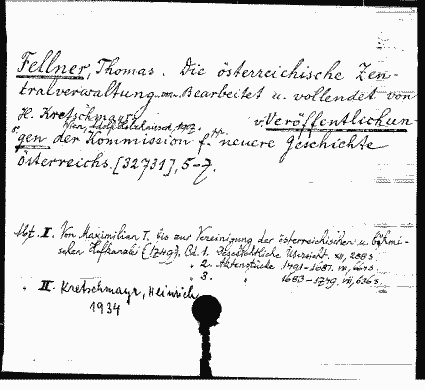 Fellner, Thomas. Die österreichische Zen-
tralverwaltung. Bearbeitet u. vollendet von
H. Kretschmayr. v. Veröffentlichun
gen der Kommission f. neuere Geschichte
Österreichs. [32731], 5-7.
Abt. I. Von Maximilian I. bis zur Vereinigung der österreichischen u. böhmi-
schen Hofkanzlei (1749). Bd. 1. Geschichtliche Übersicht. XII, 288 s.
" 2. Aktenstücke 1491-1681.
" 3. " 1683-1749. VII, 636 s.
" II. Kretschmayr, Heinrich,
1934